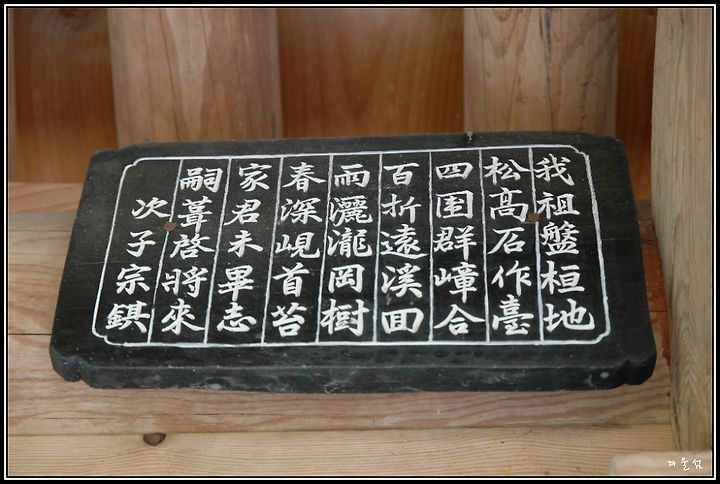 我祖盤桓地
松高石作臺
四圍群嶂合
百折遠溪回
雨灑瀧岡樹
春深峴首苔
家君未畢志
嗣葺啓將來
次子宗錤
겨울섬